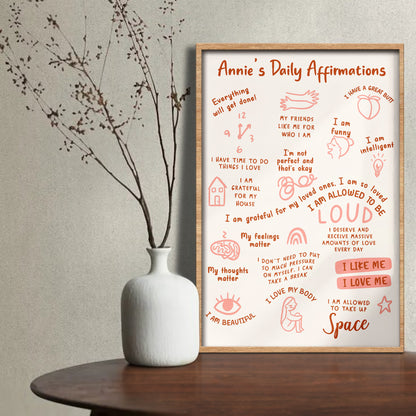 Annie's Daily Affirmations
Everything
will get done!
MY FRIENDS
LIKE ME FOR
WHO I AM
I HAVE A GREAT BUTT
12
9 3
6
I am
funny
I am
intelligent
I HAVE TIME TO DO
THINGS I LOVE
I'm not
perfect and
that's okay
I AM
GRATEFUL
FOR MY
HOUSE
I am grateful for my loved ones. I am so loved
I AM ALLOWED TO BE
LOUD
My feelings
matter
I DESERVE AND
RECEIVE MASSIVE
AMOUNTS OF LOVE
EVERY DAY
My thoughts
matter
I DON'T NEED TO PUT
SO MUCH PRESSURE
ON MYSELF. I CAN
TAKE A BREAK
I LIKE ME
I LOVE ME
I AM BEAUTIFUL
I LOVE MY BODY
I AM ALLOWED
TO TAKE UP
Space